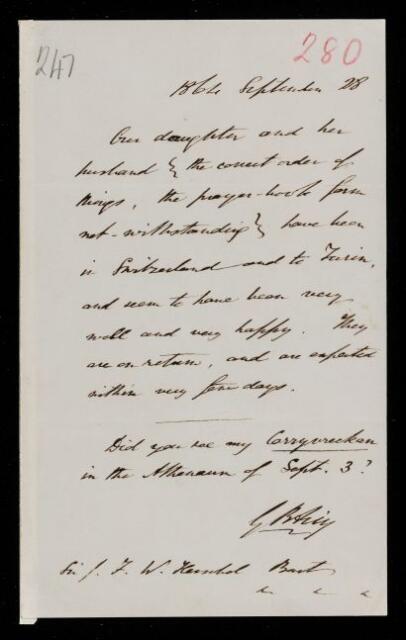 247
280
1864 September 28
Our daughter and her
husband { the correct order of
things, the prayer-book form
not-withstanding } have been
in Switzerland and to Turin,
and seem to have been very
well and very happy. They
are on return, and are expected
within very few days.
Did you see my Corryvreckan
in the Athenæum of Sept. 3?
G B Airy
Sir J. F. W. Herschel Bart